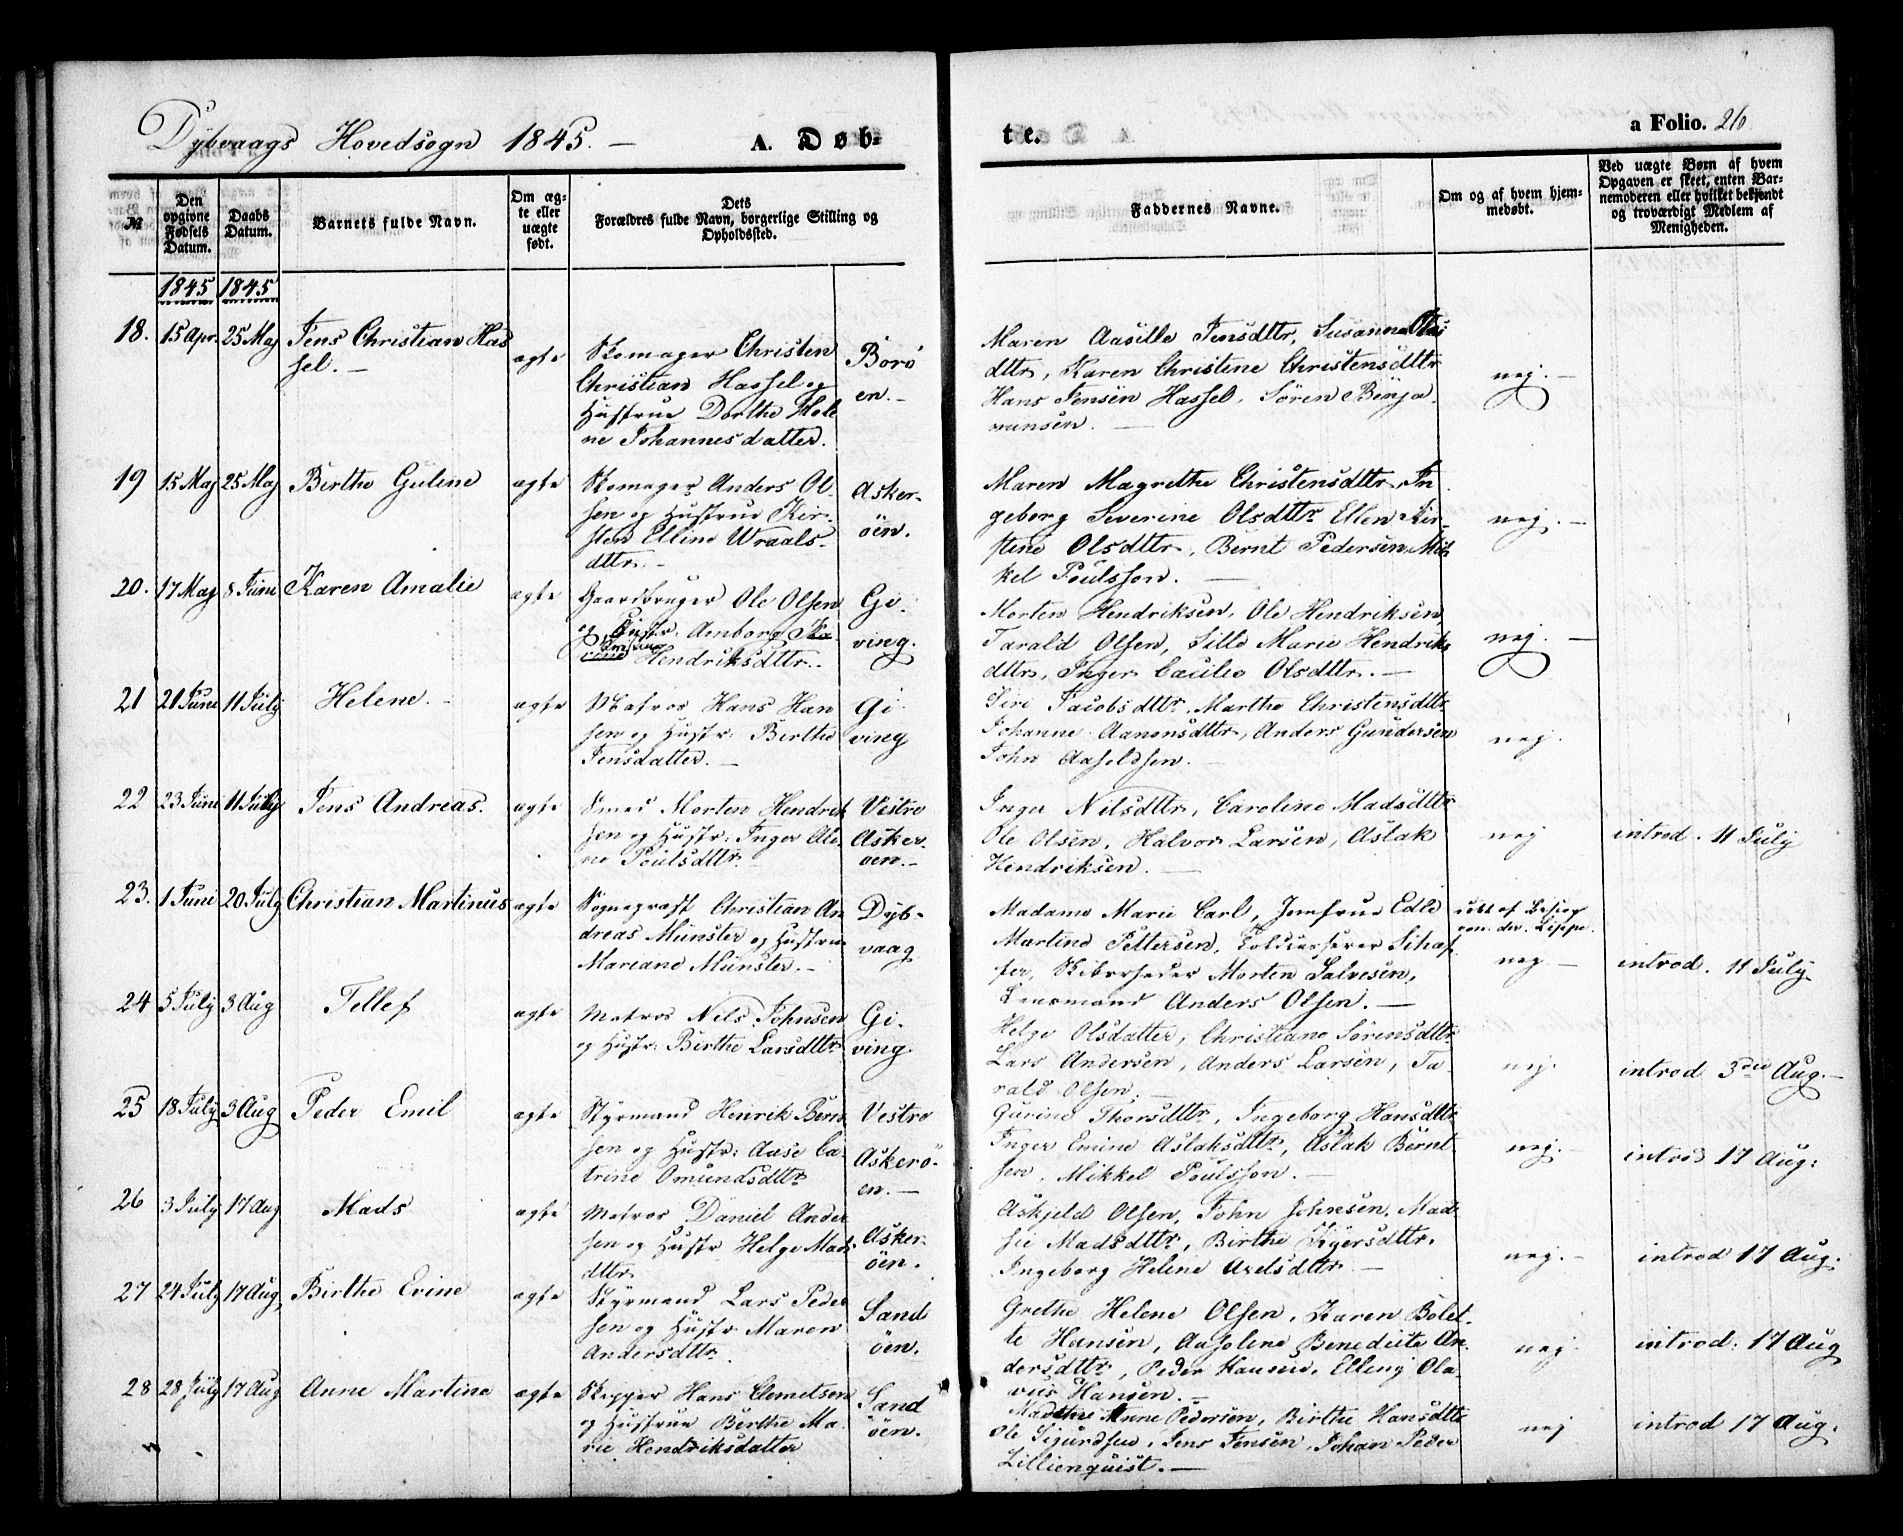 Dybvaags Hovedsogn 1845. — A. Døb-
te.
a Folio. 26.
№
Den opgivne Fødsels Datum.
Daabs Datum.
Barnets fulde Navn.
Om æg-te eller uægte født.
Dets Forældres fulde Navn, borgerlige Stilling og Opholdssted.
Faddernes Navne.
Om og af hvem hjem-medøbt.
Ved uægte Børn af hvem Opgaven er skeet, enten Bar-nemoderen eller hvilket bekjendt og troværdigt Medlem af Menigheden.
1845 1845
18. 15 Apr. 25 Maj Jens Christian Has
sel. —
ægte
Skomager Christen
Christian Hassel og
Hustrue Dorthe Hele
ne Johannesdatter.
Borö
en. —
Maren Aasille Jensdttr, Susanne Olai
dttr, Karen Christine Christensdttr
Hans Jensen Hassel, Sören Benja-
minsen. —
nej. —
19 15 Maj 25 Maj Birthe Guline
ægte
Skomager Anders Ol-
sen og Hustrue Kir-
sten Elline Wraals-
dttr. —
Asker-
öen.
Maren Magrethe Christensdttr, In
geborg Severine Olsdttr, Ellen Kir-
stine Olsdttr, Bernt Pedersen, Mik
kel Poulsson. —
nej. —
20. 17 Maj 8 Juni Karen Amalie
ægte
Gaardbruger Ole Olsen
og Hustr: Amborg
Hendriksdttr.
Gi-
ving.
Morten Hendriksen, Ole Hendriksen,
Tarald Olsen, Sille Marie Hendriks
dttr, Inger Cæcilie Olsdttr. —
nej. —
21 21 Juni 11 July Helene. —
ægte
Matros Hans Han
sen og Hustr: Birthe
Jensdatter. —
Gi-
ving
Siri Jacobsdttr, Marthe Christensdttr
Johanne Aanonsdttr, Anders Gundersen
John Aaseldsen. —
nej.
22 23 Juni 11 July Jens Andreas.
ægte
Smed Morten Hendrik
sen og Hustr: Inger Ole-
ne Poulsdttr.
Vestre
Asker-
öen. —
Inger Nilsdttr, Caroline Madsdttr
Ole Olsen, Halvor Larsen, Aslak
Hendriksen. —
nej
introd. 11 July
23. 1 Juni 20 July Christian Martinus
ægte
Sognepræst Christian An
dreas Münster og Hustrue
Mariane Münster. —
Dyb-
vaag
Madame Marie Carl, Jomfrue Edle
Martine Pettersen, Toldcasserer Schaf
fer, Skibsrheder Morten Salvesen,
Lensmand Anders Olsen. —
nej —
introd. 11 July
24 5 July 3 Aug Tellef
ægte
Matros Nils Johnsen
og Hustr: Birthe Larsdttr
Gi-
ving
Helge Olsdatter, Christiane Sörensdttr
Lars Andersen, Anders Larsen, Ta
rald Olsen. —
nej.
introd 3die Aug. —
25 18 July 3 Aug Peder Emil
ægte
Styrmand Henrik Bern
sen og Hustr: Aase Ca-
trine Omundsdttr
Vestre
Askerö-
en. —
Gurine Thorsdttr, Ingeborg Hansdttr
Inger Emine Aslaksdttr, Aslak Bernt
sen, Mikkel Poulsson. —
nej. —
introd 17 Aug:
26 3 July 17 Aug Mads
ægte
Matros Daniel Ander
sen og Hustr Helge Mads
dttr
Asker-
öen.
Askjeld Olsen, John Johnsen, Mad-
sie Madsdttr, Birthe
Ingeborg Helene Axelsdttr —
nej. —
introd 17 Aug.
27 24 July 17 Aug Birthe Evine
ægte
Styrmand Lars Peder
sen og Hustr Maren
Andersdttr.
Sand
öen.
Grethe Helene Olsen, Karen Bolet-
te Hansen, Aasoline Benedicte An-
dersdttr, Peder Hansen, Elling Ola-
vus Hansen. —
nej.
introd: 17 Aug
28 28 July 17 Aug Anne Martine
ægte
Skipper Hans Clemetsen
og Hustrue Berthe Ma-
rie Hendriksdatter
Sand
öen.
Anne Pedersen, Birthe Hansdttr
Ole Sigurdsen, Jens Jensen, Johan Peder
Lillienquist. —
nej
introd 17 Aug.